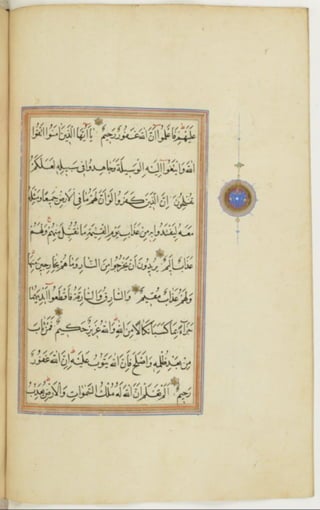 عَلَيْهِمْ فَاعْلَمُوا أَنَّ اللَّهَ غَفُورٌ رَحِيمٌ يَا أَيُّهَا الَّذِينَ آمَنُوا اتَّقُوا
اللَّهَ وَابْتَغُوا إِلَيْهِ الْوَسِيلَةَ وَجَاهِدُوا فِي سَبِيلِهِ لَعَلَّكُمْ
تُفْلِحُونَ إِنَّ الَّذِينَ كَفَرُوا لَوْ أَنَّ لَهُمْ مَا فِي الْأَرْضِ جَمِيعًا وَمِثْلَهُ
مَعَهُ لِيَفْتَدُوا بِهِ مِنْ عَذَابِ يَوْمِ الْقِيٰمَةِ مَا تُقُبِّلَ مِنْهُمْ وَلَهُمْ
عَذَابٌ أَلِيمٌ يُرِيدُونَ أَنْ يَخْرُجُوا مِنَ النَّارِ وَمَا هُمْ بِخَارِجِينَ مِنْهَا
وَلَهُمْ عَذَابٌ مُقِيمٌ وَالسَّارِقُ وَالسَّارِقَةُ فَاقْطَعُوا أَيْدِيَهُمَا
جَزَاءً بِمَا كَسَبَا نَكَالًا مِنَ اللَّهِ وَاللَّهُ عَزِيزٌ حَكِيمٌ فَمَنْ تَابَ
مِنْ بَعْدِ ظُلْمِهِ وَأَصْلَحَ فَإِنَّ اللَّهَ يَتُوبُ عَلَيْهِ إِنَّ اللَّهَ غَفُورٌ
رَحِيمٌ أَلَمْ تَعْلَمْ أَنَّ اللَّهَ لَهُ مُلْكُ السَّمٰوَاتِ وَالْأَرْضِ يُعَذِّبُ